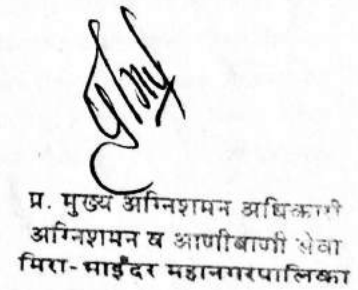 प्र. मुख्य अग्निशमन अधिकारी
अग्निशमन व आणीबाणी सेवा
मिरा-भाईंदर महानगरपालिका